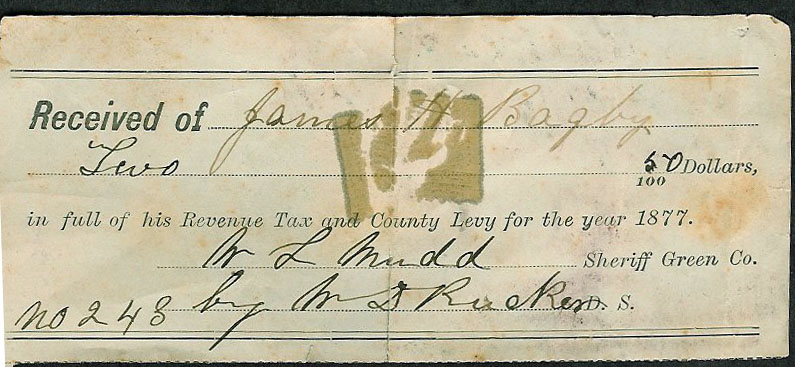 Received of James H Bagby
Two 50/100 Dollars,
in full of his Revenue Tax and County Levy for the year 1877.
W L Mudd Sheriff Green Co.
no 243 by W D Rucker D. S.